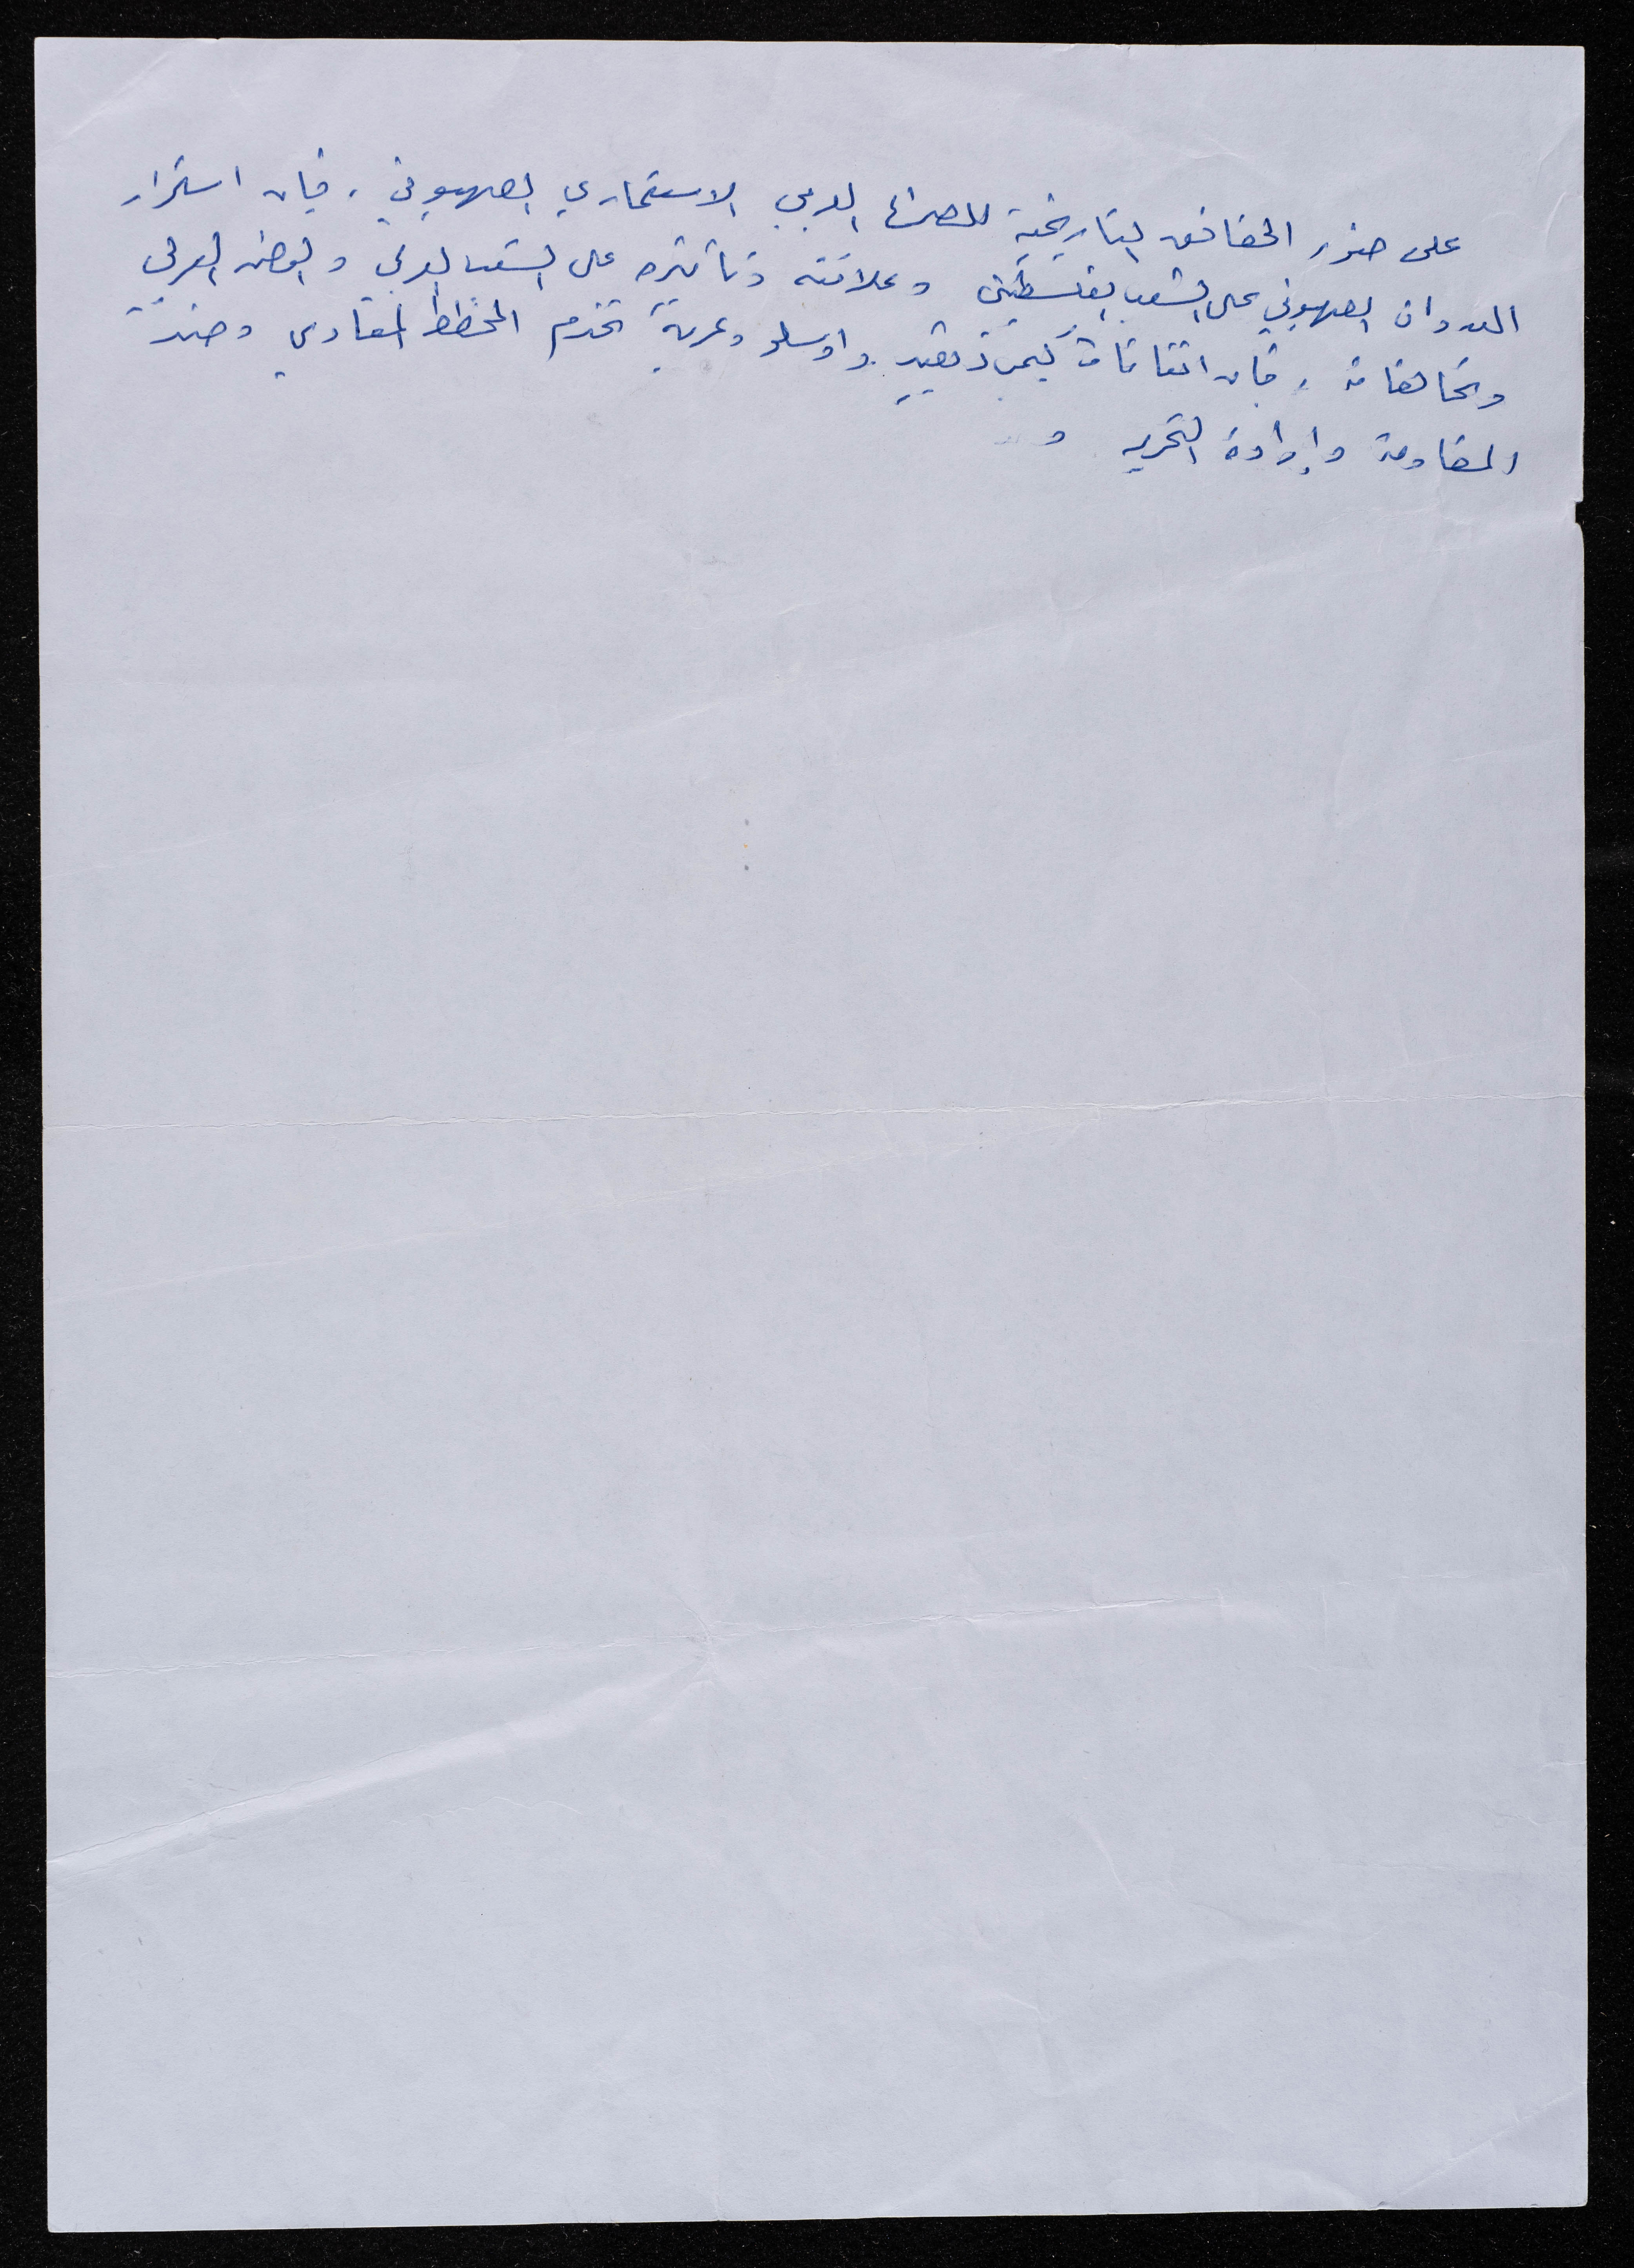 على ضوء الحقائق التاريخية للصراع العربي الاستعماري الصهيوني، فإن استمرار
العدوان الصهيوني على الشعب الفلسطيني وعلاقته وتأثيره على الشعب العربي والوطن العربي
فإن اتفاقات كيمب ديفيد واوسلو وعربة تخدم المخطط المعادي وضد
المقاومة وإرادة التحرير و